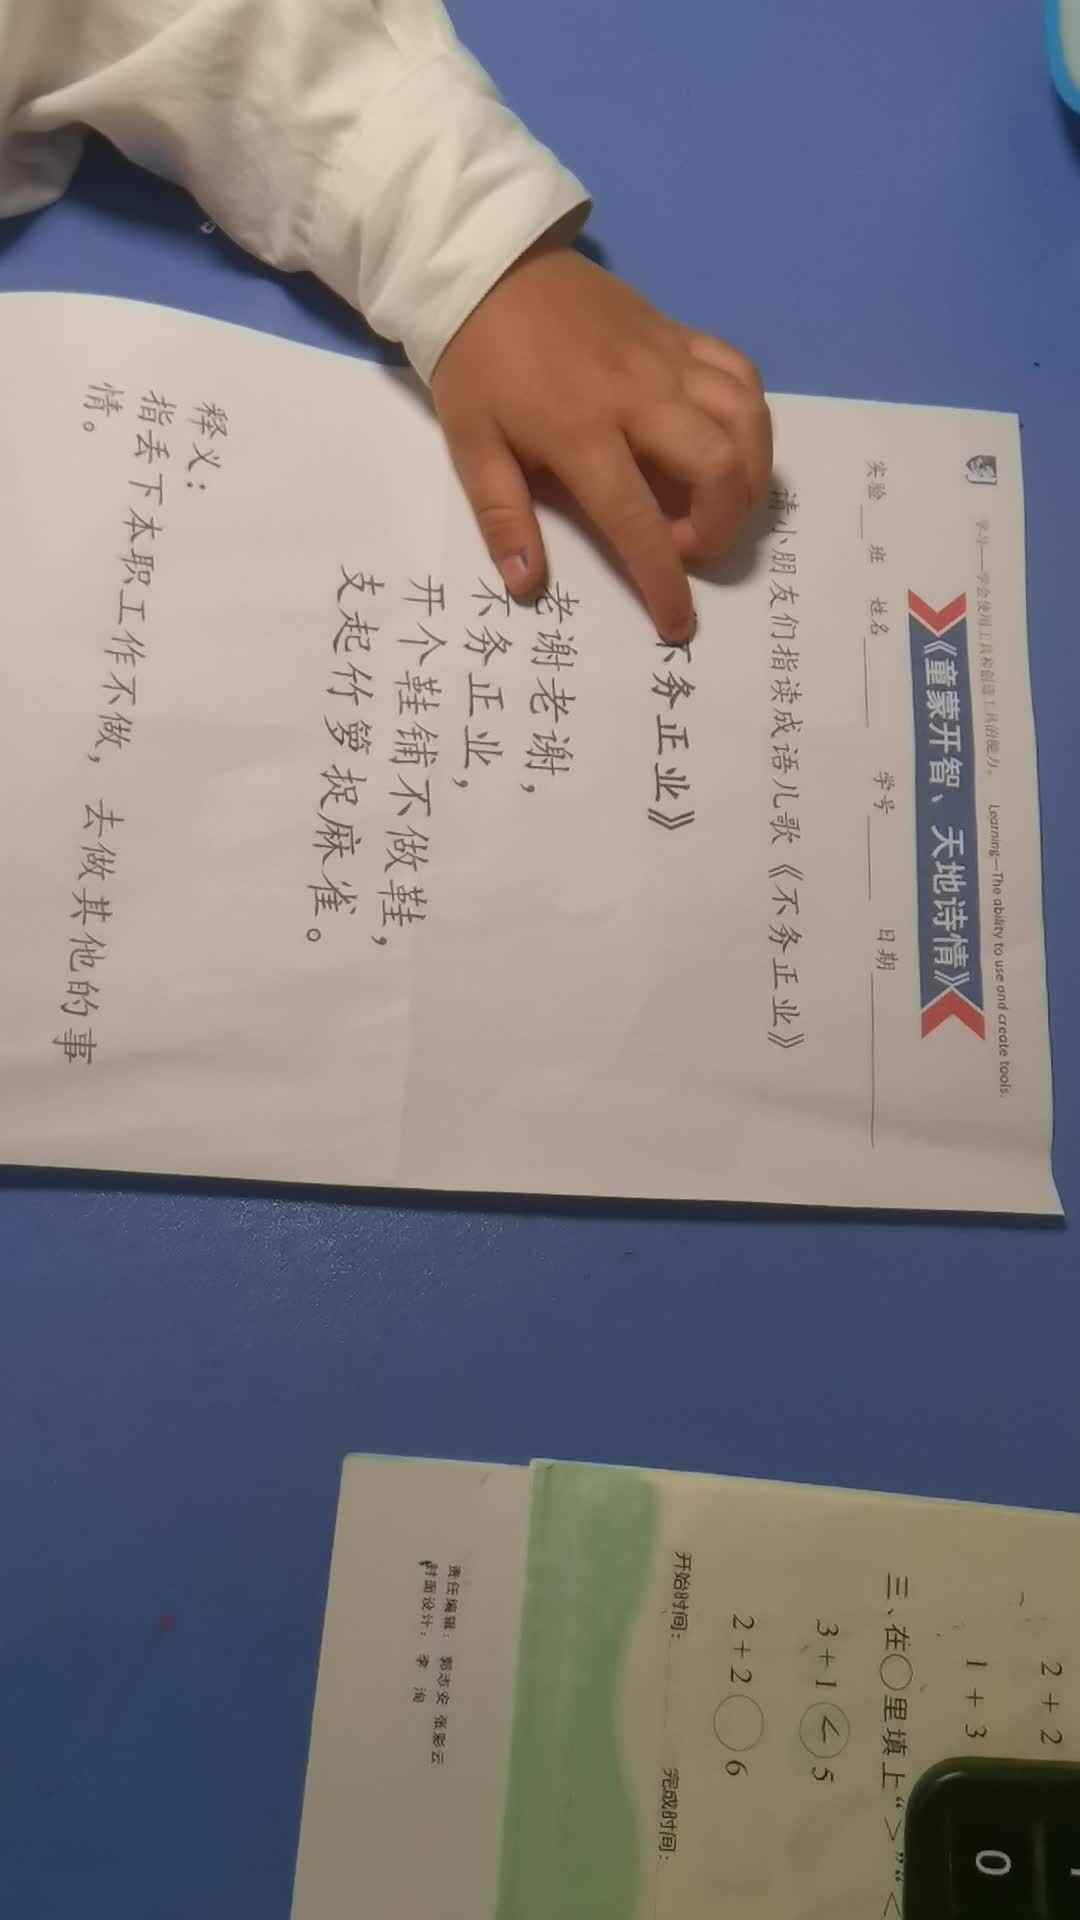 学习——学会使用工具和创造工具的能力。 Learning—The ability to use and create tools.
《童蒙开智、天地诗情》
实验 班 姓名 学号 日期
请小朋友们指读成语儿歌《不务正业》
不务正业》
老谢老谢,
不务正业,
开个鞋铺不做鞋,
支起竹箩捉麻雀。
释义:
指丢下本职工作不做, 去做其他的事
情。
2+2
1+3
三、在○里填上“>”“<
3+1<5
2+2○6
开始时间: 完成时间:
责任编辑: 郭志安 张彩云
封面设计: 李 洵
0